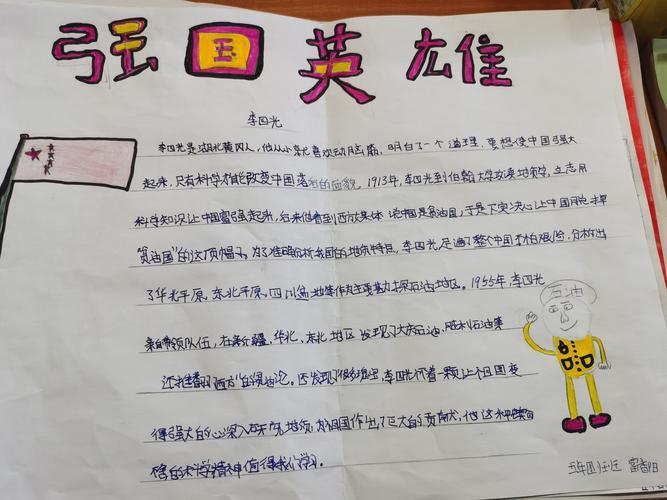 强国英雄
李四光
李四光是湖北黄冈人，他从小就喜欢动脑筋，明白了一个道理，要想使中国强大
起来，只有科学才能改变中国落后的面貌。1913年，李四光到伯翰大学攻读地质学，立志用
科学知识让中国富强起来，后来他看到西方媒体说中国是贫油国，于是下定决心让中国脱掉
"贫油国"的这顶帽子。为了准确分析我国的地质特点，李四光走遍了整个中国不怕艰险，分析出
了华北平原、东北平原、四川盆地等作为主要勘探石油地区。1955年，李四光
亲自带领队伍，在新疆、华北、东北地区发现了大庆石油、胜利石油等
还推翻了西方"贫油论"。还发现了 李四光怀着一颗让中国变
得强大的心深入研究地质为祖国作出了巨大的贡献，他这
的科学精神值得我们学习。
石油
五年四班